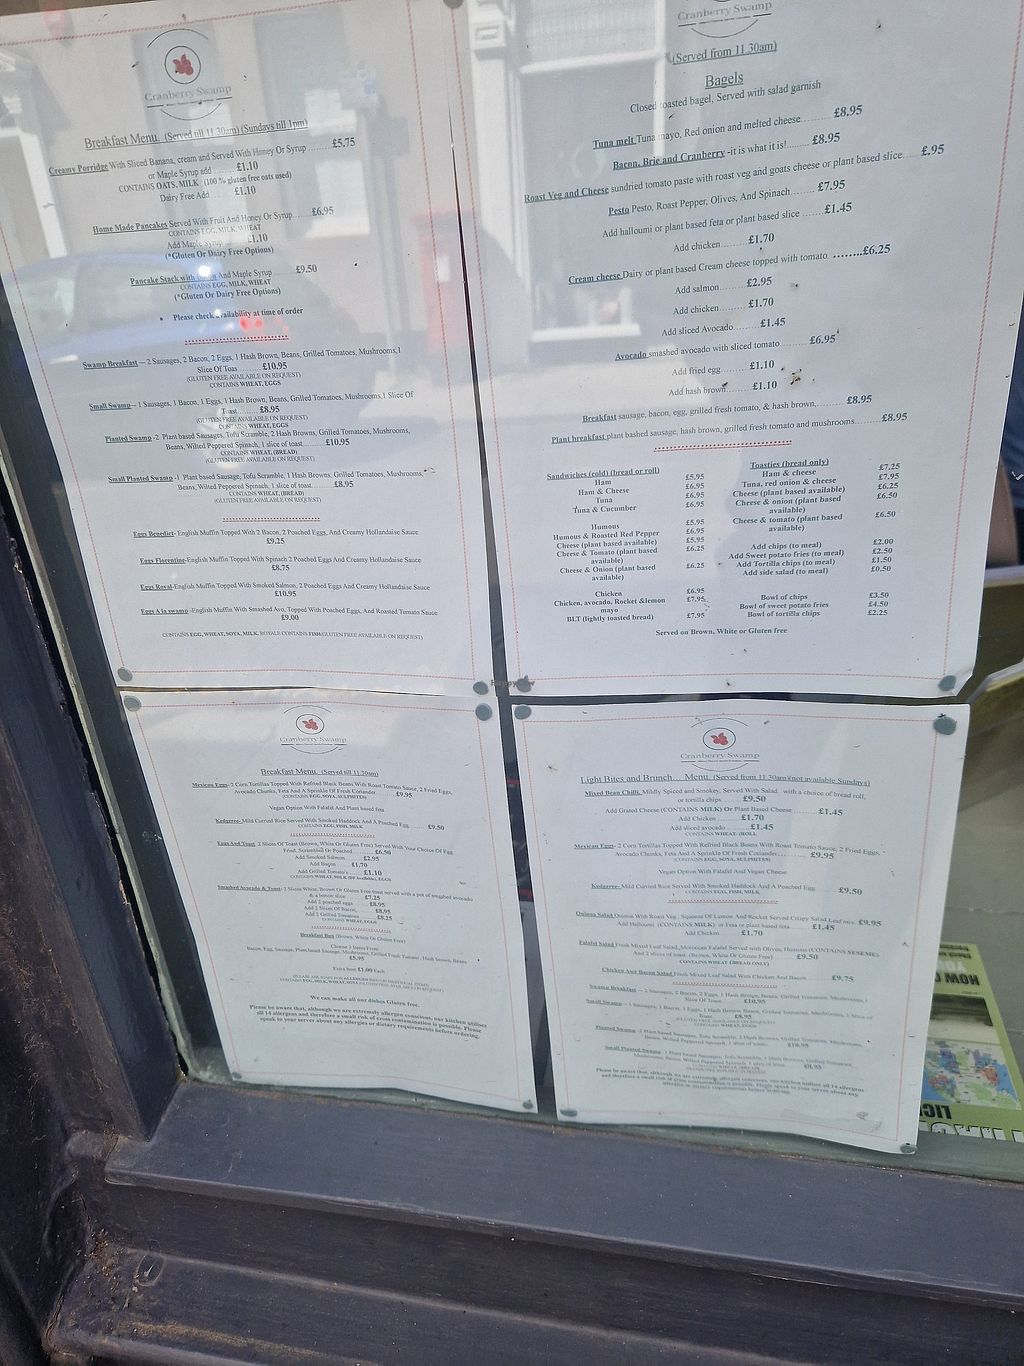 Cranberry Swamp
Breakfast Menu (Served till 11.30am) (Sundays till 1pm)
Creamy Porridge With Sliced Banana, cream and Served With Honey Or Syrup.......£5.75
or Maple Syrup add......£1.10
CONTAINS OATS, MILK (100 % gluten free oats used)
Dairy Free Add......£1.10
Home Made Pancakes Served With Fruit And Honey Or Syrup......£6.95
CONTAINS EGG, MILK, WHEAT
Add Maple Syrup......£1.10
(*Gluten Or Dairy Free Options)
Pancake Stack with Bacon And Maple Syrup......£9.50
CONTAINS EGG, MILK, WHEAT
(*Gluten Or Dairy Free Options)
• Please check availability at time of order
Swamp Breakfast — 2 Sausages, 2 Bacon, 2 Eggs, 1 Hash Brown, Beans, Grilled Tomatoes, Mushrooms,1
Slice Of Toas......£10.95
(GLUTEN FREE AVAILABLE ON REQUEST)
CONTAINS WHEAT, EGGS
Small Swamp— 1 Sausages, 1 Bacon, 1 Eggs, 1 Hash Brown, Beans, Grilled Tomatoes, Mushrooms,1 Slice Of
Toast......£8.95
(GLUTEN FREE AVAILABLE ON REQUEST)
CONTAINS WHEAT, EGGS
Planted Swamp -2 Plant based Sausages, Tofu Scramble, 2 Hash Browns, Grilled Tomatoes, Mushrooms,
Beans, Wilted Peppered Spinach, 1 slice of toast......£10.95
CONTAINS WHEAT, (BREAD)
(GLUTEN FREE AVAILABLE ON REQUEST)
Small Planted Swamp -1 Plant based Sausage, Tofu Scramble, 1 Hash Browns, Grilled Tomatoes, Mushrooms,
Beans, Wilted Peppered Spinach, 1 slice of toast......£8.95
CONTAINS WHEAT, (BREAD)
(GLUTEN FREE AVAILABLE ON REQUEST)
Eggs Benedict- English Muffin Topped With 2 Bacon, 2 Poached Eggs, And Creamy Hollandaise Sauce
£9.25
Eggs Florentine-English Muffin Topped With Spinach 2 Poached Eggs And Creamy Hollandaise Sauce
£8.75
Eggs Royal-English Muffin Topped With Smoked Salmon, 2 Poached Eggs And Creamy Hollandaise Sauce
£10.95
Eggs A la swamp -English Muffin With Smashed Avo, Topped With Poached Eggs, And Roasted Tomato Sauce
£9.00
CONTAINS EGG, WHEAT, SOYA, MILK, ROYALE CONTAINS FISH(GLUTEN FREE AVAILABLE ON REQUEST)
Cranberry Swamp
(Served from 11.30am)
Bagels
Closed toasted bagel, Served with salad garnish
Tuna melt Tuna mayo, Red onion and melted cheese......£8.95
Bacon, Brie and Cranberry -it is what it is!......£8.95
Roast Veg and Cheese sundried tomato paste with roast veg and goats cheese or plant based slice......£.95
Pesto Pesto, Roast Pepper, Olives, And Spinach......£7.95
Add halloumi or plant based feta or plant based slice......£1.45
Add chicken......£1.70
Cream cheese Dairy or plant based Cream cheese topped with tomato.........£6.25
Add salmon......£2.95
Add chicken......£1.70
Add sliced Avocado......£1.45
Avocado smashed avocado with sliced tomato......£6.95
Add fried egg......£1.10
Add hash brown......£1.10
Breakfast sausage, bacon, egg, grilled fresh tomato, & hash brown,......£8.95
Plant breakfast plant bashed sausage, hash brown, grilled fresh tomato and mushrooms......£8.95
Sandwiches (cold) (bread or roll)
Ham £5.95
Ham & Cheese £6.95
Tuna £6.95
Tuna & Cucumber £6.95
Humous £5.95
Humous & Roasted Red Pepper £6.95
Cheese (plant based available) £5.95
Cheese & Tomato (plant based £6.25
available)
Cheese & Onion (plant based £6.25
available)
Chicken £6.95
Chicken, avocado, Rocket &lemon £7.95
mayo
BLT (lightly toasted bread) £7.95
Toasties (bread only)
Ham & cheese £7.25
Tuna, red onion & cheese £7.95
Cheese (plant based available) £6.25
Cheese & onion (plant based £6.50
available)
Cheese & tomato (plant based £6.50
available)
Add chips (to meal) £2.00
Add Sweet potato fries (to meal) £2.50
Add Tortilla chips (to meal) £1.50
Add side salad (to meal) £0.50
Bowl of chips £3.50
Bowl of sweet potato fries £4.50
Bowl of tortilla chips £2.25
Served on Brown, White or Gluten free
Cranberry Swamp
Breakfast Menu (Served till 11.30am)
Mexican Eggs- 2 Corn Tortillas Topped With Refried Black Beans With Roast Tomato Sauce, 2 Fried Eggs,
Avocado Chunks, Feta And A Sprinkle Of Fresh Coriander......£9.95
(CONTAINS EGG, SOYA, SULPHITES)
Vegan Option With Falafil And Plant based feta
Kedgeree- Mild Curried Rice Served With Smoked Haddock And A Poached Egg......£9.50
CONTAINS EGG, FISH, MILK
Eggs And Toast- 2 Slices Of Toast (Brown, White Or Gluten Free) Served With Your Choice Of Egg
Fried, Scrambled Or Poached......£6.50
Add Smoked Salmon......£2.95
Add Bacon......£1.70
Add Grilled Tomato's......£1.10
Smashed Avocado & Toast- 2 Slices White, Brown Or Gluten Free toast served with a pot of smashed avocado
& a lemon slice £7.25
Add 2 poached eggs £8.95
Add 2 Slices Of Bacon £8.95
Add 2 Grilled Tomatoes £8.25
CONTAINS WHEAT, EGGS
Breakfast Bun (Brown, White Or Gluten Free)
Choose 3 Items From:
Bacon, Egg, Sausage, Plant based Sausage, Mushrooms, Grilled Fresh Tomato, Hash brown, Beans
£5.95
Extra Item £1.00 Each
We can make all our dishes Gluten free.
Please be aware that, although we are extremely allergen conscious, our kitchen utilises
all 14 allergens and therefore a small risk of cross contamination is possible. Please
speak to your server about any allergies or dietary requirements before ordering.
Cranberry Swamp
Light Bites and Brunch.... Menu (Served from 11.30am)(not available Sundays)
Mixed Bean Chilli, Mildly Spiced and Smokey, Served With Salad with a choice of bread roll,
or tortilla chips......£9.50
Add Grated Cheese (CONTAINS MILK) Or Plant Based Cheese......£1.45
Add Chicken......£1.70
Add sliced avocado......£1.45
CONTAINS WHEAT- (ROLL)
Mexican Eggs- 2 Corn Tortillas Topped With Refried Black Beans With Roast Tomato Sauce, 2 Fried Eggs,
Avocado Chunks, Feta And A Sprinkle Of Fresh Coriander......£9.95
(CONTAINS EGG, SOYA, SULPHITES)
Vegan Option With Falafil And Vegan Cheese
Kedgeree- Mild Curried Rice Served With Smoked Haddock And A Poached Egg......£9.50
CONTAINS EGG, FISH, MILK
Quinoa Salad Quinoa With Roast Veg, Squeeze Of Lemon And Rocket Served Crispy Salad Leaf mix. £9.95
Add Halloumi (CONTAINS MILK) or Feta or plant based feta......£1.45
Add Chicken......£1.70
Falafil Salad Fresh Mixed Leaf Salad, Moroccan Falafil Served with Olives, Humous (CONTAINS SESEME)
And 2 slices of toast (Brown, White Or Gluten Free)......£9.50
CONTAINS WHEAT (BREAD ONLY)
Chicken And Bacon Salad Fresh Mixed Leaf Salad With Chicken And Bacon......£9.75
Swamp Breakfast — 2 Sausages, 2 Bacon, 2 Eggs, 1 Hash Brown, Beans, Grilled Tomatoes, Mushrooms,1
Slice Of Toast......£10.95
Small Swamp— 1 Sausages, 1 Bacon, 1 Eggs, 1 Hash Brown, Beans, Grilled Tomatoes, Mushrooms, 1 Slice Of
Toast......£8.95
CONTAINS WHEAT, EGGS
Planted Swamp -2 Plant based Sausages, Tofu Scramble, 2 Hash Browns, Grilled Tomatoes, Mushrooms,
Beans, Wilted Peppered Spinach, 1 slice of toast......£10.95
Small Planted Swamp -1 Plant based Sausages, Tofu Scramble, 1 Hash Browns, Grilled Tomatoes,
Mushrooms, Beans, Wilted Peppered Spinach, 1 slice of toast......£8.95
Please be aware that, although we are extremely allergen conscious, our kitchen utilises all 14 allergens
and therefore a small risk of cross contamination is possible. Please speak to your server about any
allergies or dietary requirements before ordering.
HOW